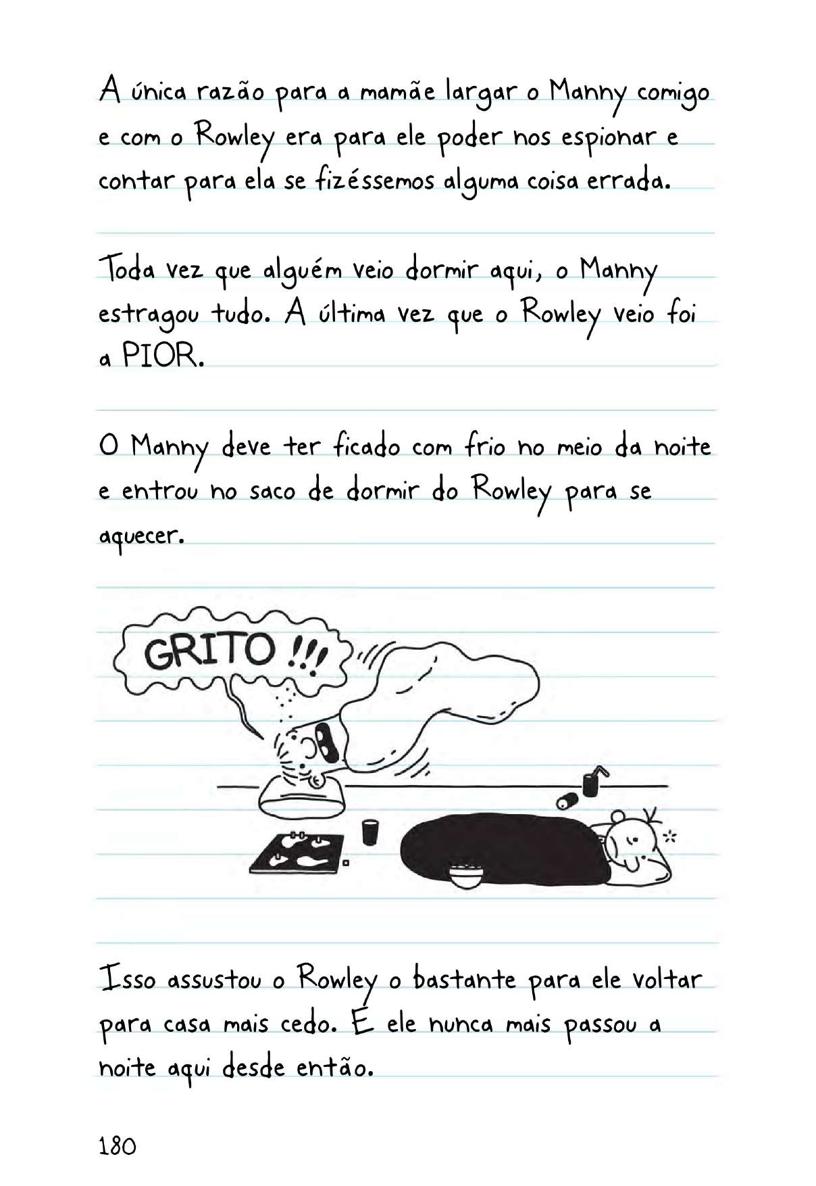 A única razão para a mamãe largar o Manny comigo
e com o Rowley era para ele poder nos espionar e
contar para ela se fizéssemos alguma coisa errada.
Toda vez que alguém veio dormir aqui, o Manny
estragou tudo. A última vez que o Rowley veio foi
a PIOR.
O Manny deve ter ficado com frio no meio da noite
e entrou no saco de dormir do Rowley para se
aquecer.
GRITO !!!
Isso assustou o Rowley o bastante para ele voltar
para casa mais cedo. E ele nunca mais passou a
noite aqui desde então.
180